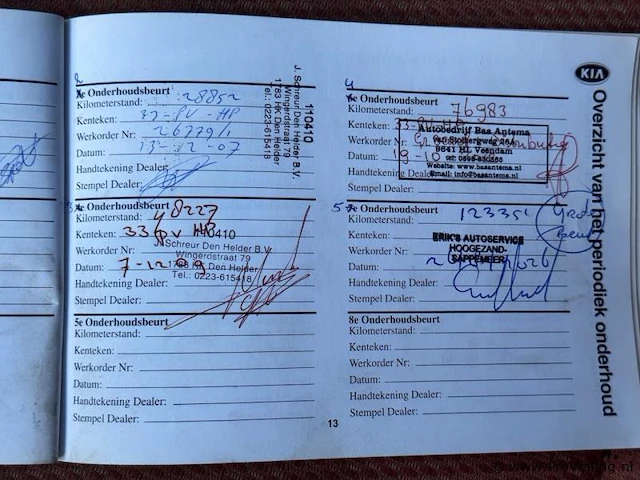 KIA
Overzicht van het periodiek onderhoud
2
Onderhoudsbeurt
Kilometerstand: 28852
Kenteken: 33-PV-HP
Werkorder Nr: 26779/1
Datum: 13-12-07
Handtekening Dealer:
Stempel Dealer:
110410
J. Schreur Den Helder B.V.
Wingerdstraat 79
1783 HK Den Helder
Tel.: 0223-615418
3
Onderhoudsbeurt
Kilometerstand: 48227
Kenteken: 33 PV HP
Werkorder Nr:
Datum: 7-12-09
Handtekening Dealer:
Stempel Dealer:
Schreur Den Helder B.V.
Wingerdstraat 79
Den Helder
Tel.: 0223-615418
5e Onderhoudsbeurt
Kilometerstand:
Kenteken:
Werkorder Nr:
Datum:
Handtekening Dealer:
Stempel Dealer:
4
Onderhoudsbeurt
Kilometerstand: 76983
Kenteken: 33-PV-HP
Werkorder Nr:
Datum: 19-10
Handtekening Dealer:
Stempel Dealer:
Autobedrijf Bas Antema
9641 HL Veendam
Website: www.basantema.nl
Email: info@basantema.nl
5
Onderhoudsbeurt
Kilometerstand: 123351
Kenteken:
Werkorder Nr:
Datum:
Handtekening Dealer:
Stempel Dealer:
Grote
beurt
ERIK'S AUTOSERVICE
HOOGEZAND-
SAPPEMEER
8e Onderhoudsbeurt
Kilometerstand:
Kenteken:
Werkorder Nr:
Datum:
Handtekening Dealer:
Stempel Dealer:
13